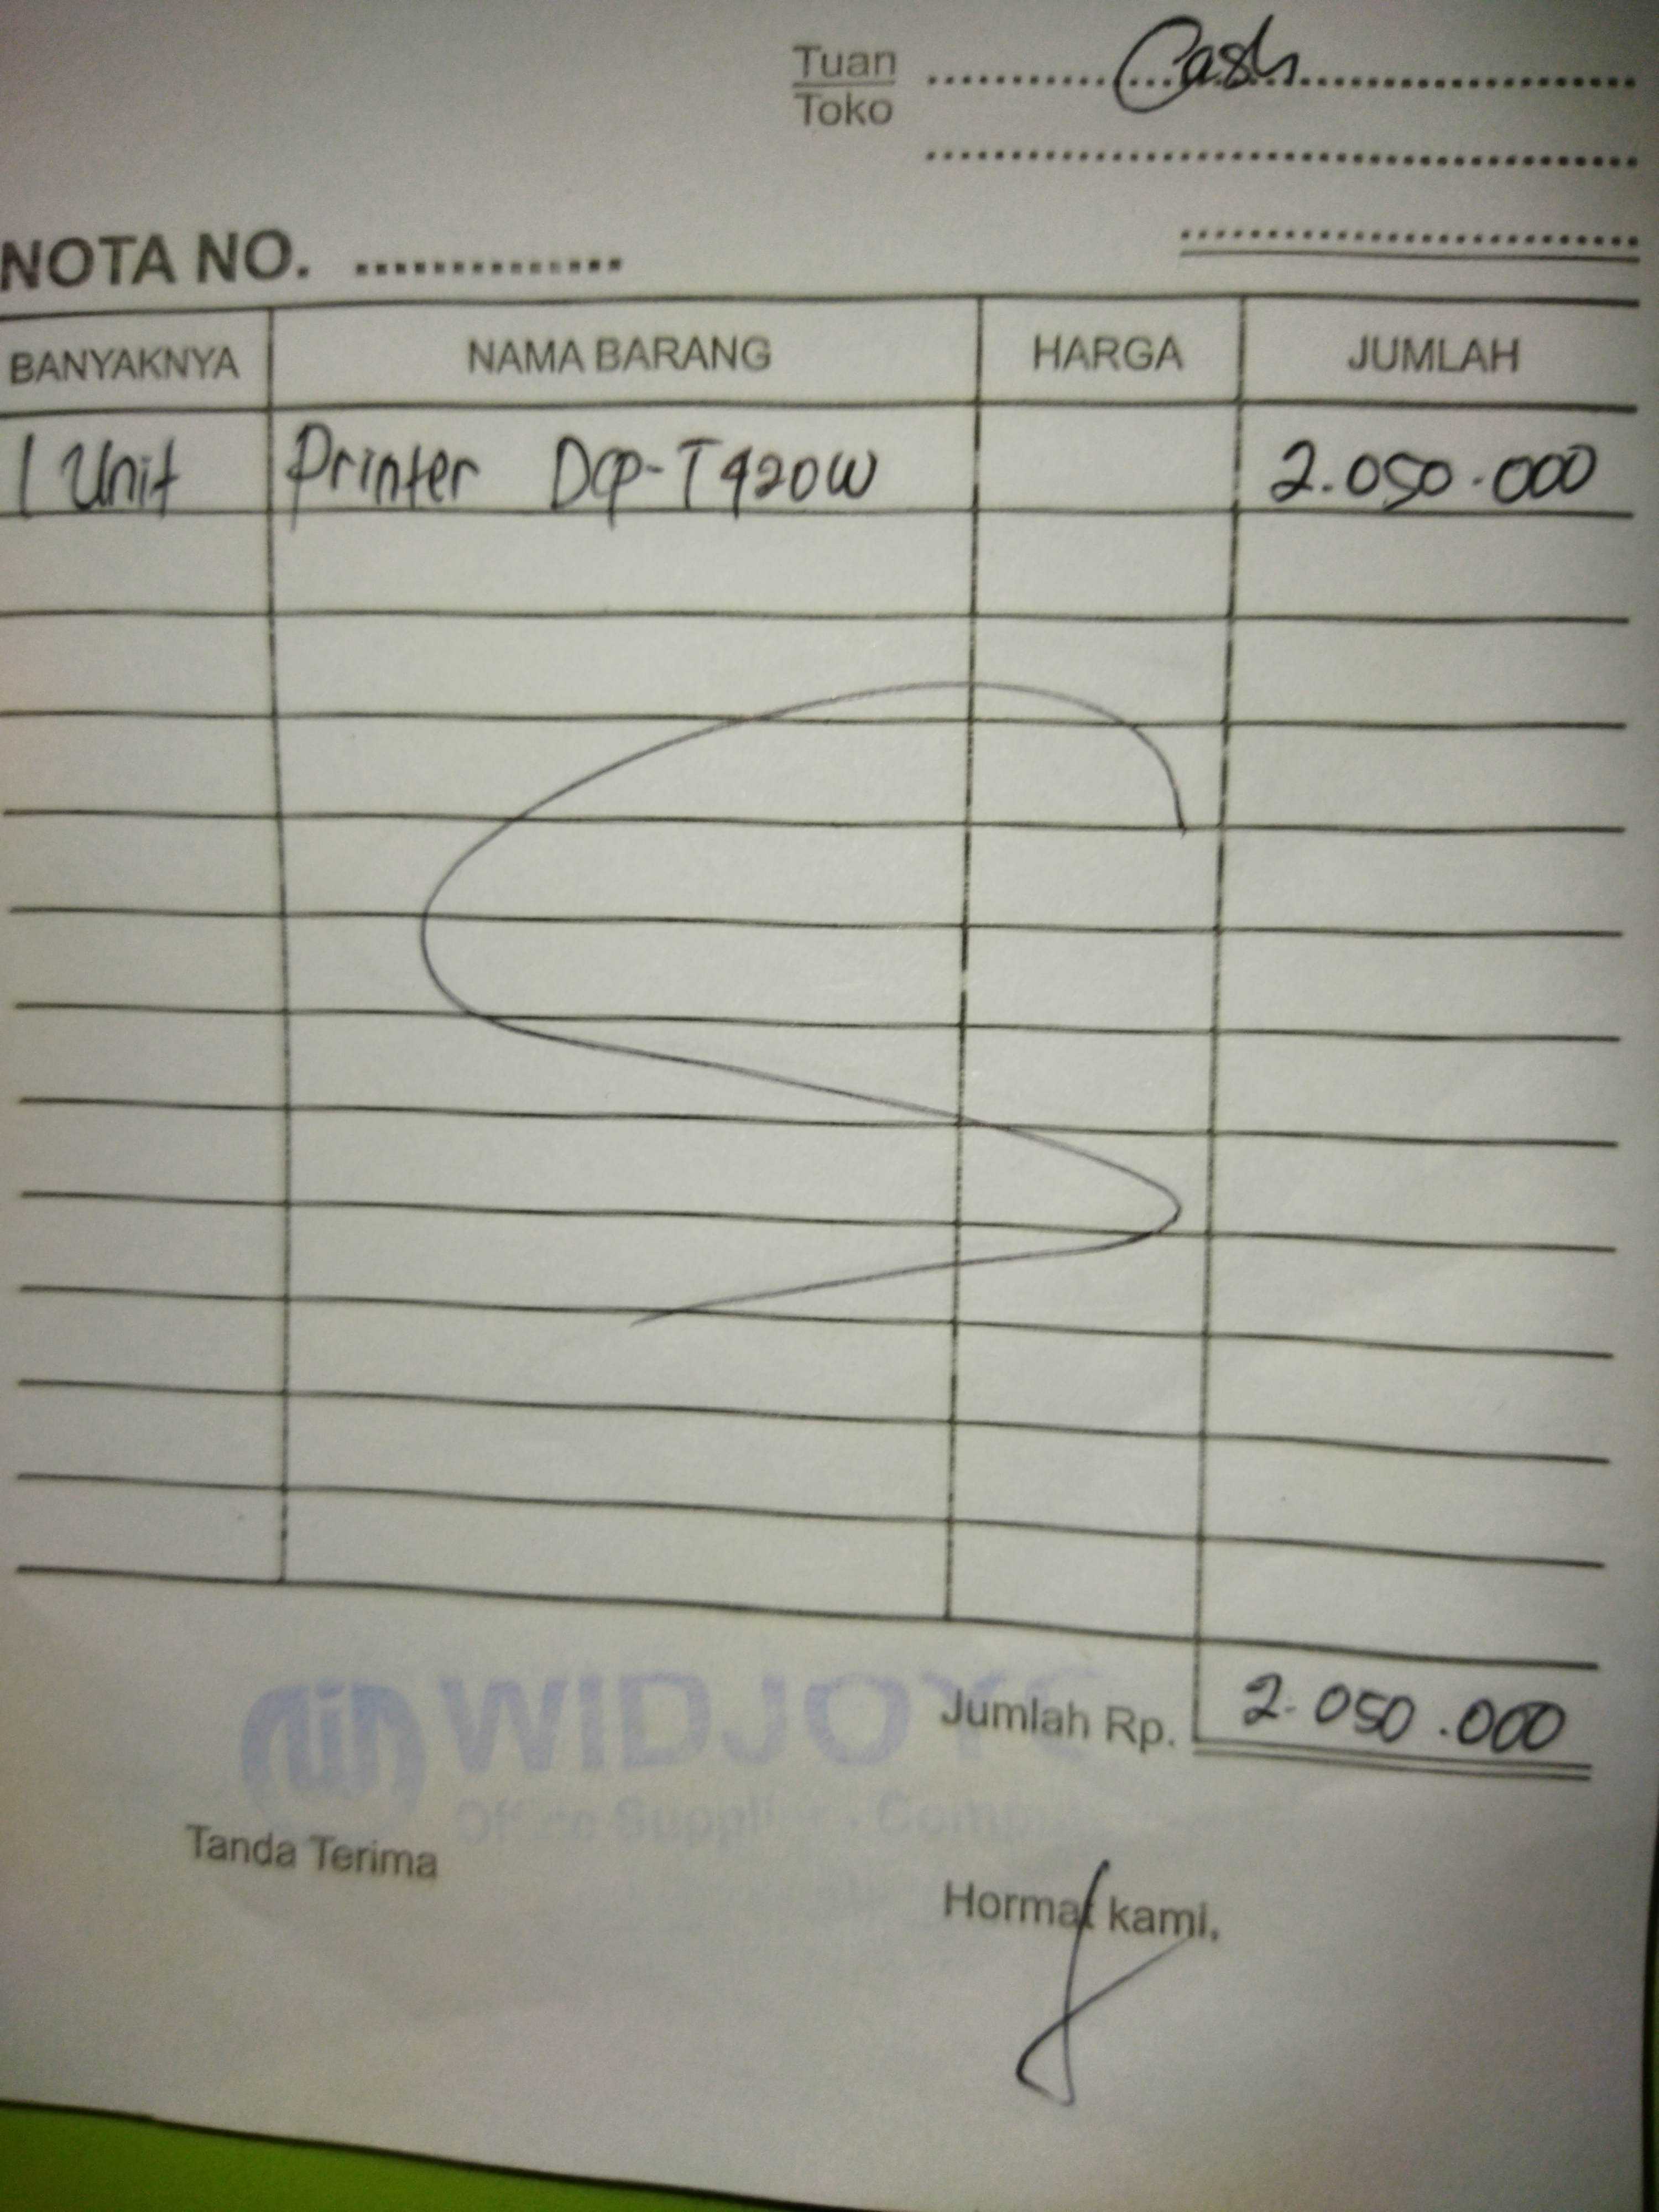 Tuan Cash
Toko
NOTA NO.
BANYAKNYA NAMA BARANG HARGA JUMLAH
1 Unit Printer DCP-T420W 2.050.000
WIDJOYO
Jumlah Rp. 2.050.000
Office Supplies
Tanda Terima
Hormat kami,